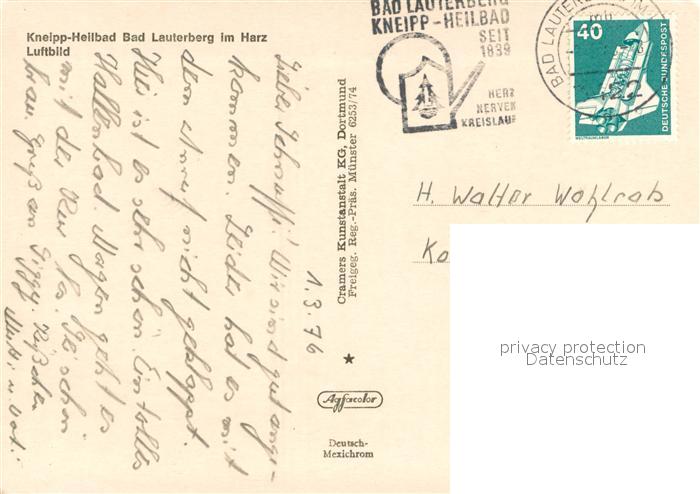 Kneipp-Heilbad Bad Lauterberg im Harz
Luftbild
BAD LAUTERBERG
KNEIPP-HEILBAD
SEIT
1839
HERZ
NERVEN
KREISLAUF
BAD LAUTERBERG IM
40
DEUTSCHE BUNDESPOST
WELTRAUMLABOR
1.3.76
Liebe Schnuffi! Wir sind gut ange-
kommen. Leider hat es mit
dem Anruf nicht geklappt.
Hier ist es sehr schön. Ein tolles
Hallenbad. Morgen geht es
mit der Kur los.
Gruß an Siggy. Küßchen
Mutti u. Vati
Cramers Kunstanstalt KG, Dortmund
Freigeg. Reg.-Präs. Münster 6253/74
Agfacolor
Deutsch-
Mexichrom
H. Walter Wohlrab
Ko
privacy protection
Datenschutz